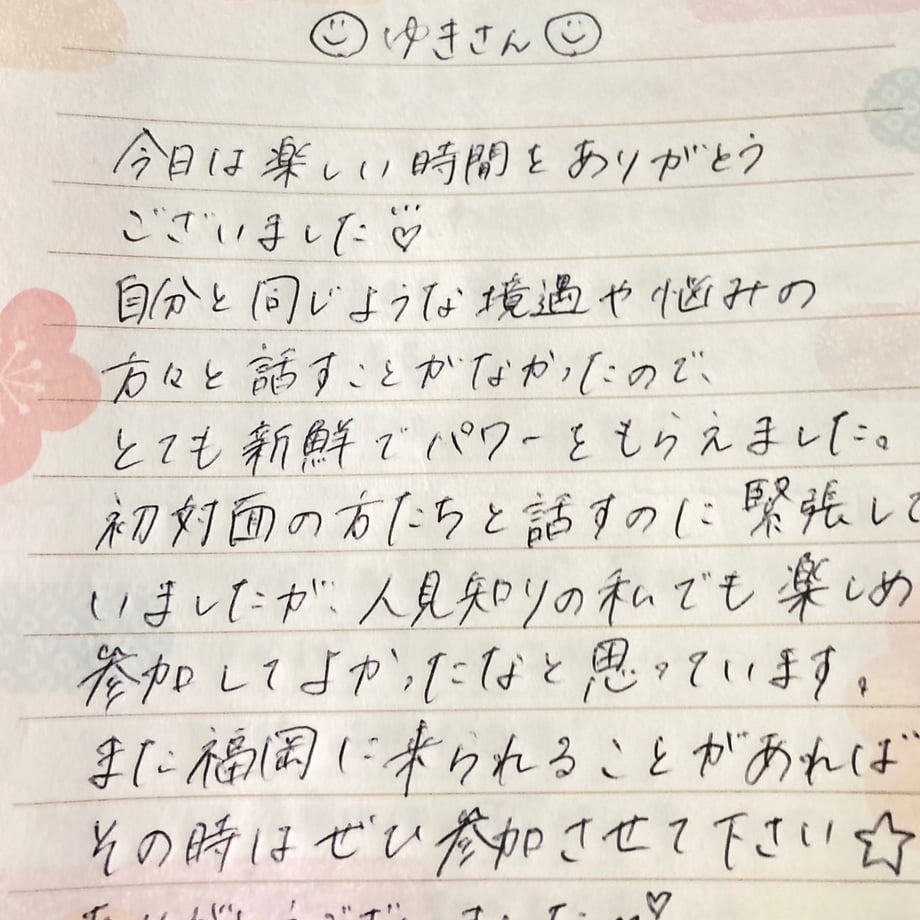 ゆきさん
今日は楽しい時間をありがとう
ございました♡
自分と同じような境遇や悩みの
方々と話すことがなかったので、
とても新鮮でパワーをもらえました。
初対面の方たちと話すのに緊張して
いましたが、人見知りの私でも楽しめ
参加してよかったなと思っています。
また福岡に来られることがあれば
その時はぜひ参加させて下さい☆